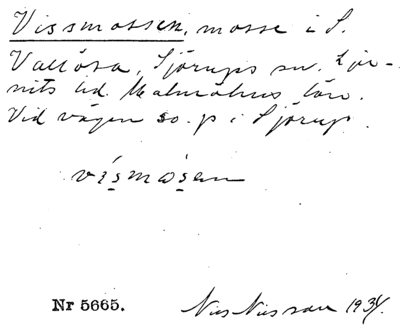 Vissmossen, mosse i S.
Vallösa, Sjörups sn. Lju-
nits hd. Malmöhus län.
Vid vägen so. p i Sjörup.
vismosen
Nr 5665. Nils Nilsson 1934.